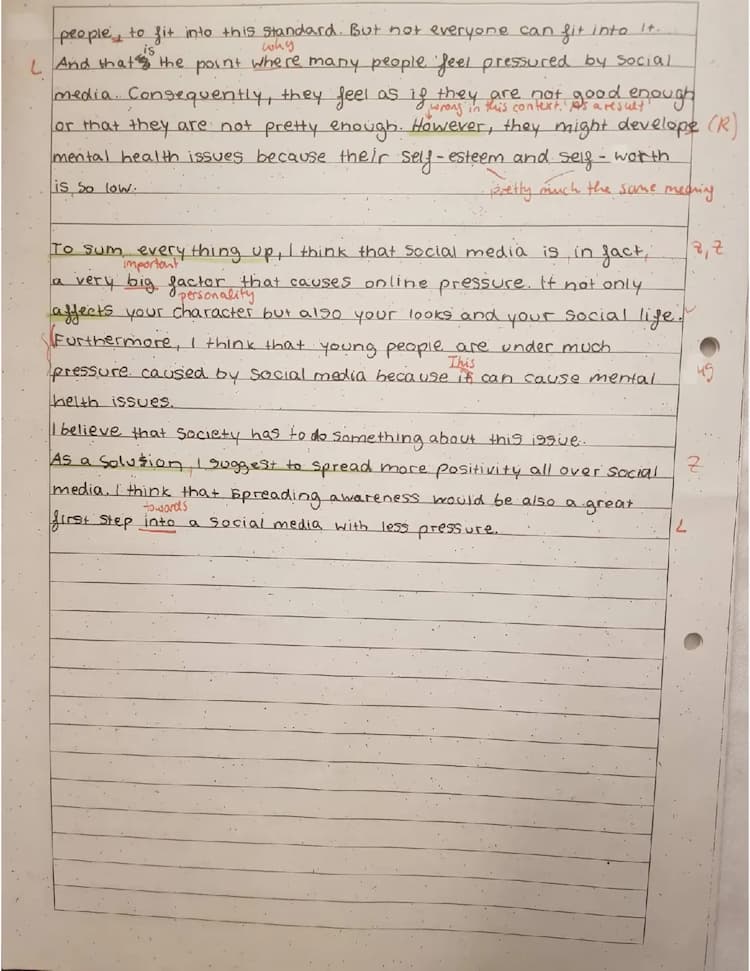 people, to fit into this standard. But not everyone can fit into it.
is why
L And that's the point where many people feel pressured by social
media. Consequently, they feel as if they are not good enough
wrong in this context! As a result
or that they are not pretty enough. However, they might develope (R)
mental health issues because their self-esteem and self-worth
is so low.
pretty much the same meaning
To sum everything up, I think that social media is in fact, Z, Z
important
a very big factor that causes online pressure. It not only
personality
affects your character but also your looks and your social life.
Furthermore, I think that young people are under much
This
pressure caused by social media because it can cause mental
helth issues.
I believe that society has to do something about this issue.
As a solution, I suggest to spread more positivity all over social Z
media. I think that spreading awareness would be also a great
towards
first step into a social media with less pressure. L